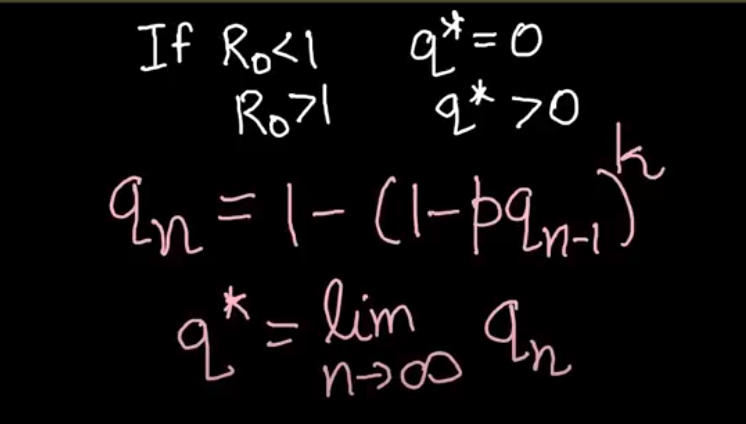 If R₀<1 q*=0
R₀>1 q*>0
qₙ = 1-(1-pqₙ₋₁)ᵏ
q* = lim qₙ
n→∞